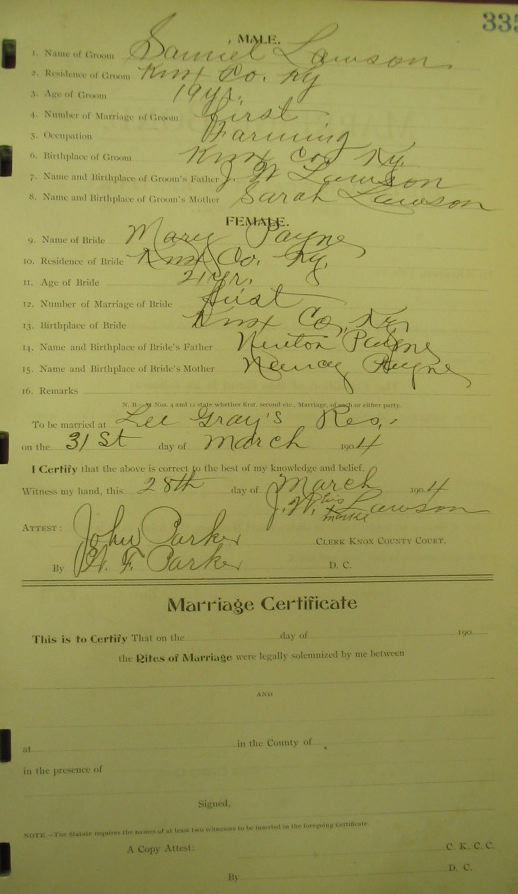 335
MALE.
1. Name of Groom Samuel Lawson
2. Residence of Groom Knox Co. Ky
3. Age of Groom 19 yr.
4. Number of Marriage of Groom first
5. Occupation Farming
6. Birthplace of Groom Knox Co. Ky.
7. Name and Birthplace of Groom's Father J. W Lawson
8. Name and Birthplace of Groom's Mother Sarah Lawson
FEMALE.
9. Name of Bride Mary Payne
10. Residence of Bride Knox Co. Ky.
11. Age of Bride 21 yr.
12. Number of Marriage of Bride first
13. Birthplace of Bride Knox Co. Ky.
14. Name and Birthplace of Bride's Father Newton Payne
15. Name and Birthplace of Bride's Mother Nancy Payne
16. Remarks
N. B.—At Nos. 4 and 12 state whether first, second etc., Marriage, of each or either party.
To be married at Lee Gray's Res.
on the 31st day of March 1904
I Certify that the above is correct to the best of my knowledge and belief.
Witness my hand, this 28th day of March 1904
J. W. his mark Lawson
ATTEST: John Parker CLERK KNOX COUNTY COURT.
By W. F. Parker D. C.
Marriage Certificate
This is to Certify That on the day of 190
the Rites of Marriage were legally solemnized by me between
AND
at in the County of
in the presence of
Signed,
NOTE.—The Statute requires the names of at least two witnesses to be inserted in the foregoing Certificate.
A Copy Attest: C. K. C. C.
By D. C.